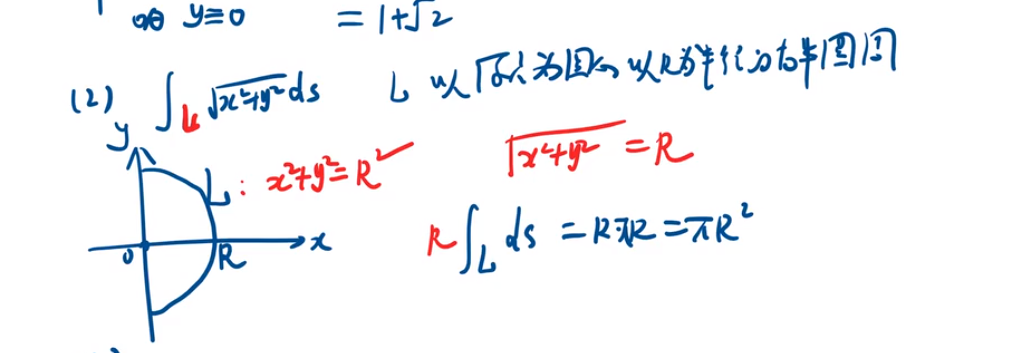 y≡0 = 1+√2
(2) ∫_L √(x²+y²) ds L 以原点为圆心 以R为半径的右半圆周
y
L: x²+y²=R² √(x²+y²) = R
R∫_L ds = RπR = πR²
0 R x